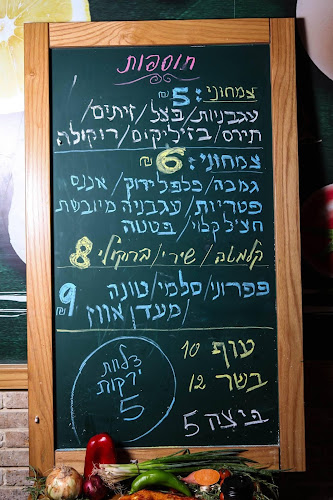 תוספות
צמחוני: 5 ₪
עגבניות / בצל / זיתים /
תירס / בזיליקום / רוקולה
צמחוני: 6 ₪
גמבה / פלפלידוק / אננס
פטריות / עגבניה מיובשת
חציל קלוי / בטטה
קלמטה / שירי / ברוקולי 8
פפרוני / סלמי / טונה 9 ₪
/ מעדן אווז
צלחת
ירקות
5
עוף 10
בשר 12
ביצה 5